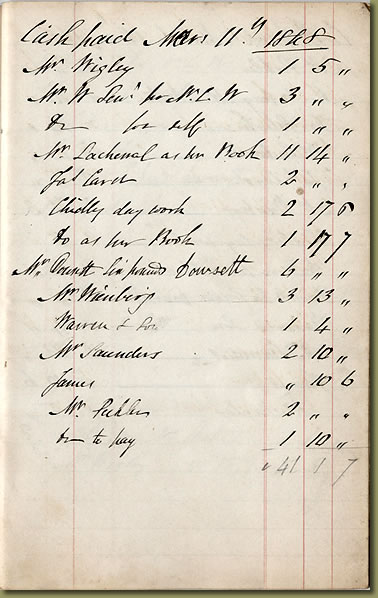 Cash paid Mar 11.y 1848
Mr. Wigley 1 5 "
Mr. W Senr. for Mr. L W 3 " "
Do for self 1 " "
Mr. Lachenal as per Book 11 14 "
Jas 2 " "
Chidly day work 2 17 6
Do as per Book 1 17 7
Mr. six pounds Dowsett 6 " "
Mr. 3 13 "
Warren & Son 1 4 "
Mr. Saunders 2 10 "
James " 10 6
Mr. 2 " "
Do to pay 1 10 "
41 1 7